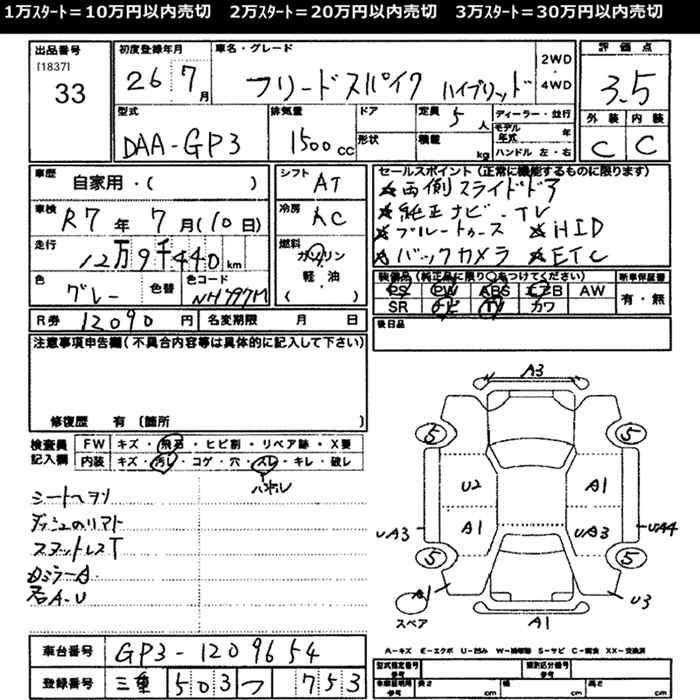 1万ｽﾀｰﾄ＝10万円以内売切　2万ｽﾀｰﾄ＝20万円以内売切　3万ｽﾀｰﾄ＝30万円以内売切
出品番号
[1837]
33
初度登録年月
26 7月
車名・グレード
フリードスパイク ハイブリッド
2WD
・
4WD
評価点
3.5
型式
DAA-GP3
排気量
1500cc
ドア
形状
定員 5人
積載 kg
ディーラー・並行
モデル年式 年
ハンドル 左・右
外装 内装
C C
車歴
自家用・( )
シフト AT
車検
R7年 7月(10日)
冷房 AC
走行
12万9千440km
燃料
ガソリン
軽・油
( )
色
グレー
色替
色コード
NH797M
セールスポイント(正常に機能するものに限ります)
両側スライドドア
純正ナビ・TV
ブルートゥース HID
バックカメラ ETC
装備品(純正品に限り○をつけてください)
新車保証書
PS PW ABS エアB AW
有・無
SR ナビ TV カワ
後日品
R券 12090円 名変期限 月 日
注意事項申告欄(不具合内容等は具体的に記入して下さい)
修復歴 有 [箇所 ]
検査員
記入欄
FW キズ・飛石・ヒビ割・リペア跡・X要
内装 キズ・汚れ・コゲ・穴・スレ・キレ・破レ
ハンドル
シートヘタリ
A3
5 5
U2 A1
A1 UA3
UA3 UA4
5 5
A1 U3
スペア
A1
A-キズ E-エクボ U-凹み W-補修跡 S-サビ C-腐食 XX-交換済
車台番号 GP3-1209654
登録番号 三重 503 つ 753
型式指定番号
参考
類別区分番号
参考
車庫証明用
参考
長さ cm 幅 cm 高さ cm